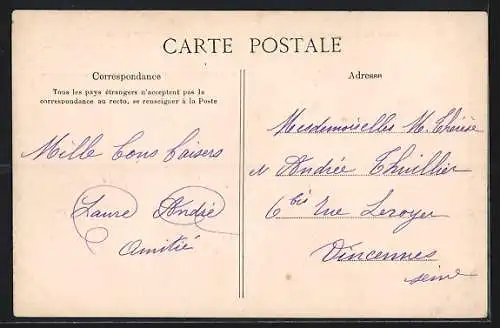 CARTE POSTALE
Correspondance
Tous les pays étrangers n'acceptent pas la
correspondance au recto, se renseigner à la Poste
Mille bons baisers
Laure André
Amitié
Adresse
Mesdemoiselles M. Thérèse
et Andrée Thuillier
6 bis rue Leroyer
Vincennes
Seine